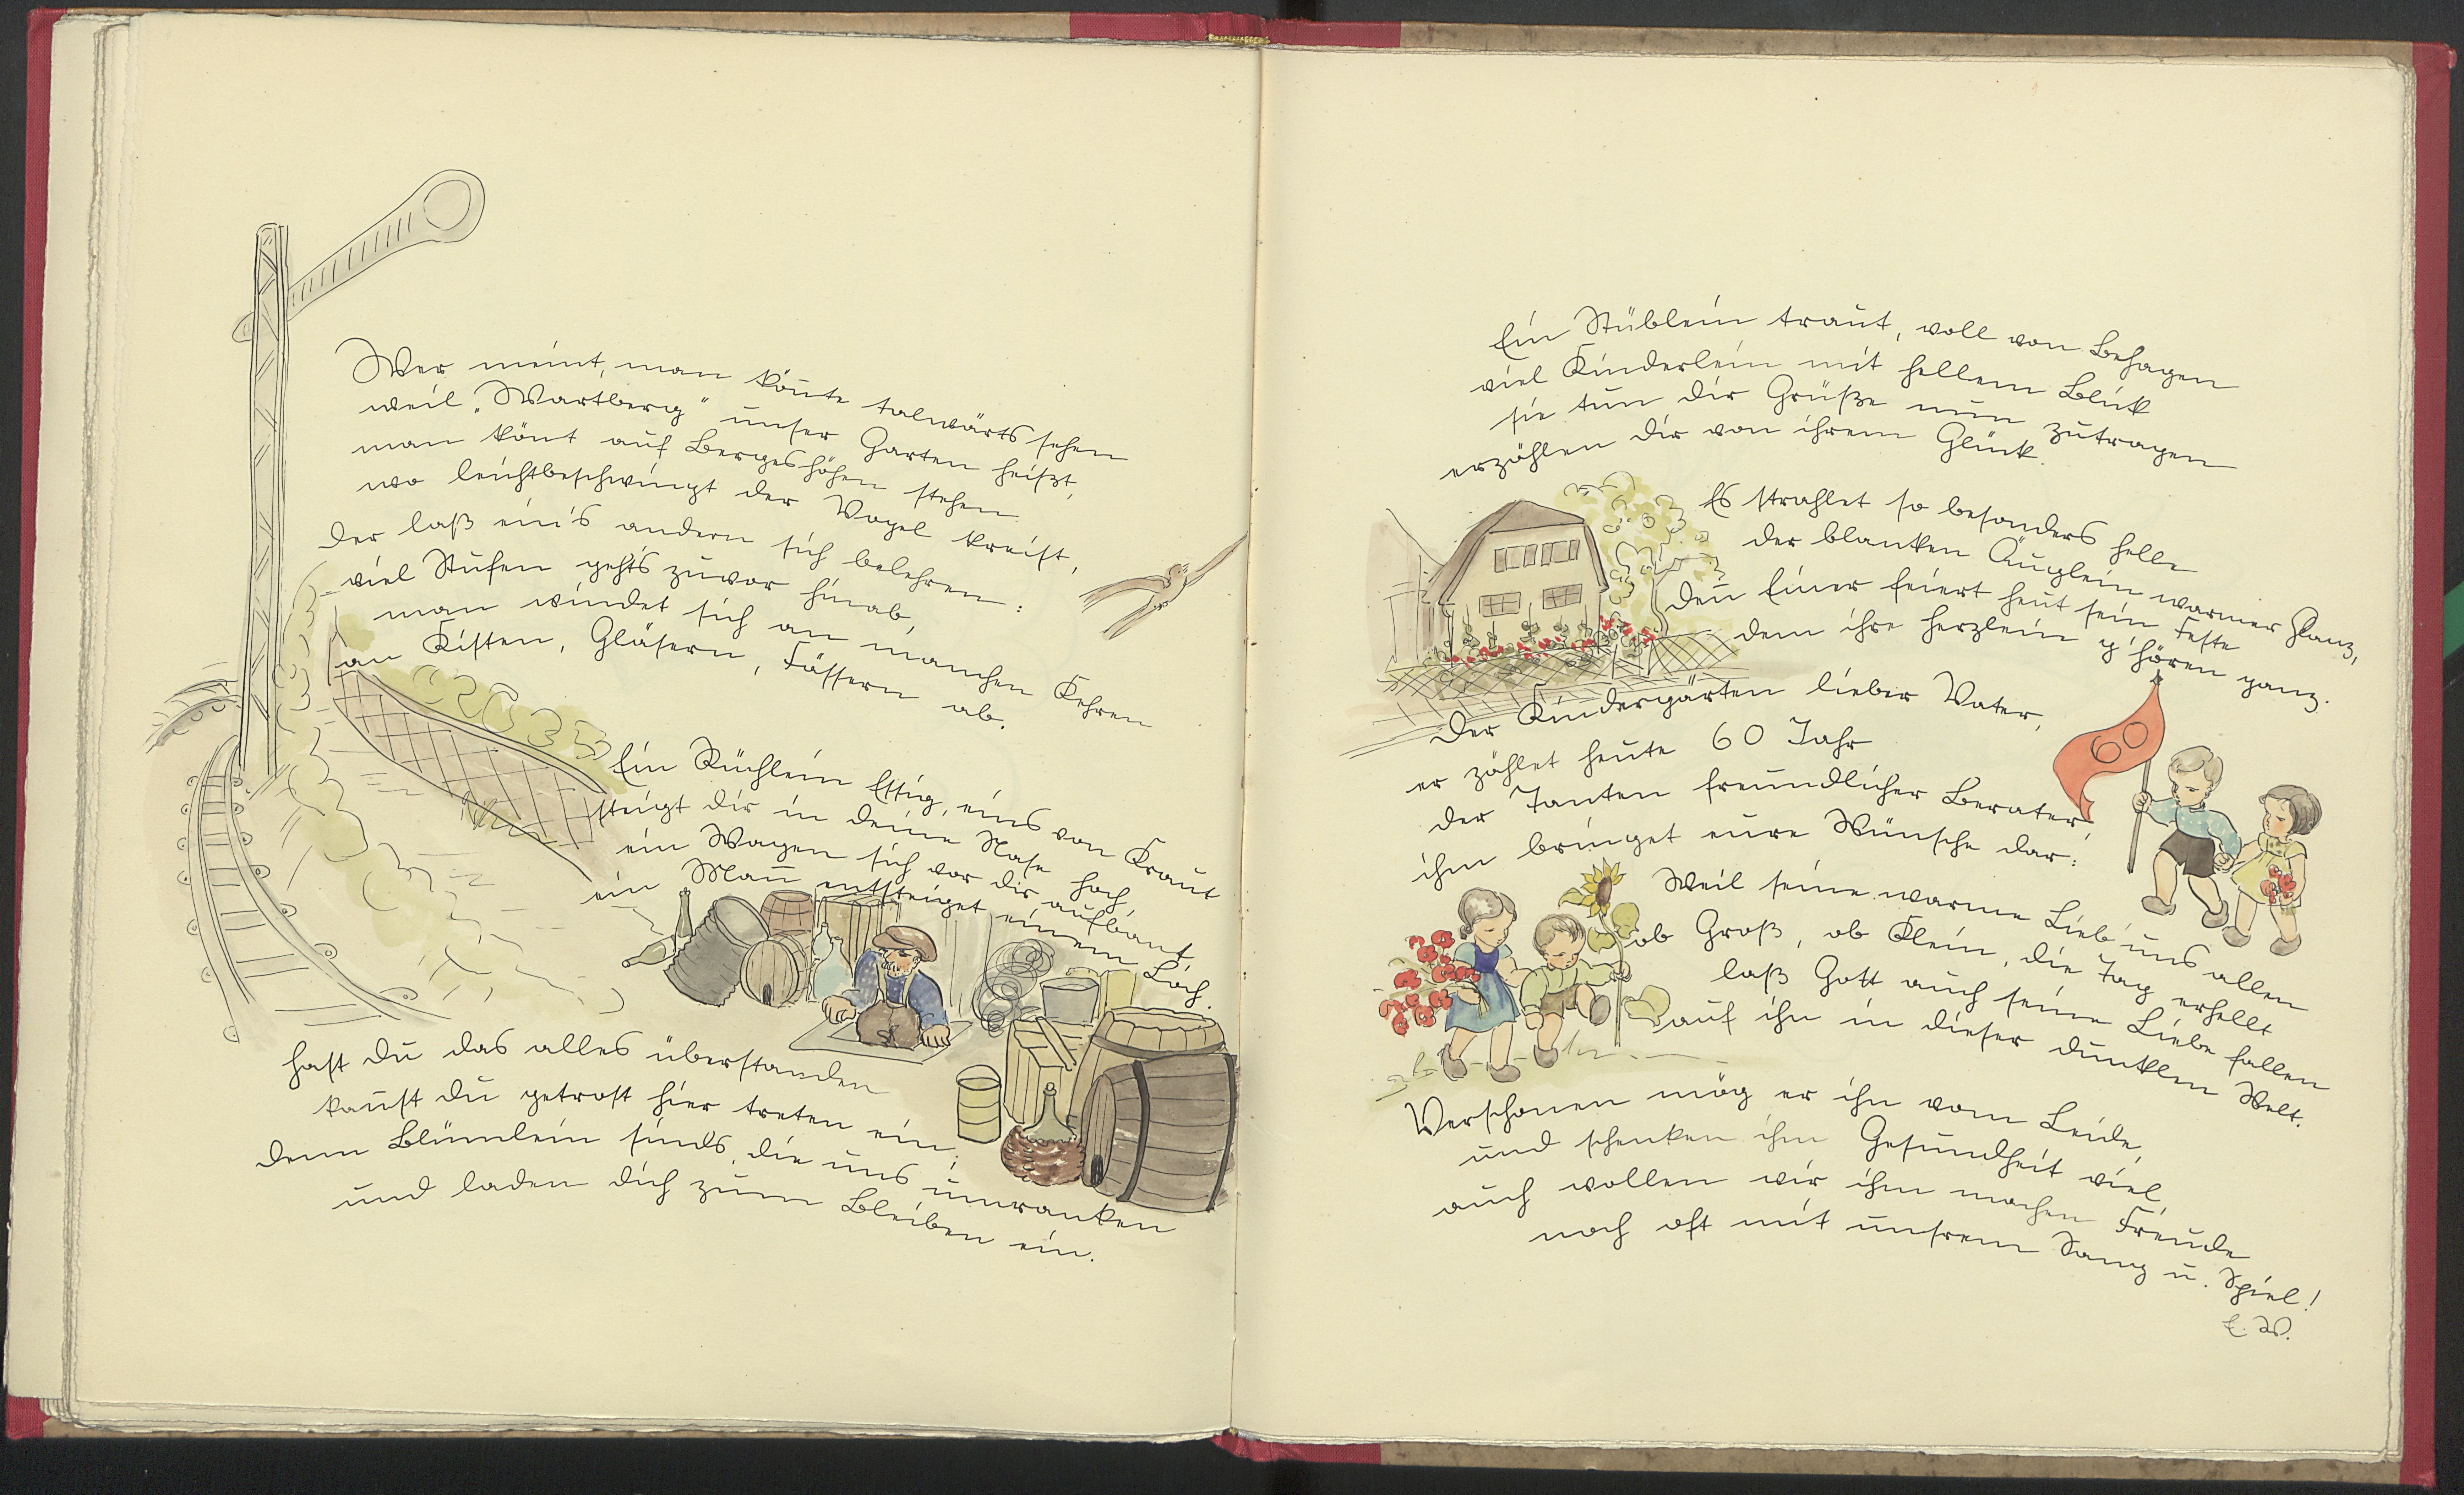 Wer meint, man kön̄te talwärts sehen
weil „Wartberg“ unser Garten heißt,
man kön̄t auf Bergeshöhen stehen
wo leichtbeschwingt der Vogel kreist,
der laß ein's andern sich belehren:
viel Stufen geht's zuvor hinab,
man windet sich an manchen Kehren
an Kisten, Gläsern, Fässern ab.
Ein Rüchlein Essig, eins von Kraut
steigt dir in deine Nase hoch,
ein Wagen sich vor dir aufbaut
ein Man̄ entsteiget einem Loch.
Hast du das alles überstanden
kan̄st du getrost hier treten ein,
denn Blümlein sind's, die uns umranken
und laden dich zum Bleiben ein.
Ein Stüblein traut, voll von Behagen
viel Kinderlein mit hellem Blick
sie tun dir Grüße nun zutragen
erzählen dir von ihrem Glück.
Es strahlet so besonders helle
der blanken Äuglein warmer Glanz,
den̄ Einer feiert heut sein Feste
dem ihre Herzlein g'hören ganz.
Der Kindergärten lieber Vater,
er zählet heute 60 Jahr
der Tanten freundlicher Berater,
ihm bringet eure Wünsche dar:
60
Weil seine warme Lieb' uns allen
ob Groß, ob Klein, die Tag erhellt
laß Gott auch seine Liebe fallen
auf ihn in dieser dunklen Welt.
Verschonen mög er ihn vom Leide,
und schenken ihm Gesundheit viel,
auch wollen wir ihm machen Freude
noch oft mit unsrem Sang u. Spiel!
E. W.